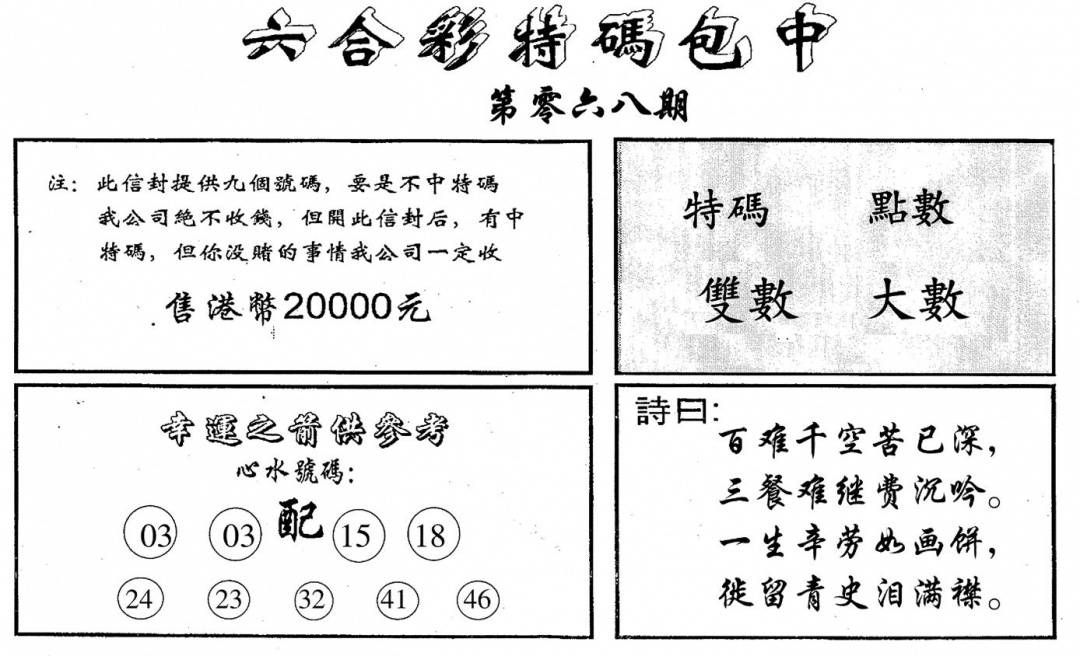 六合彩特碼包中
第零六八期
注：此信封提供九個號碼，要是不中特碼
我公司絶不收錢，但開此信封后，有中
特碼，但你没賭的事情我公司一定收
售港幣20000元
特碼 點數
雙數 大數
幸運之箭供參考
心水號碼：
03 03 配 15 18
24 23 32 41 46
詩曰：
百难千空苦已深，
三餐难继费沉吟。
一生辛劳如画饼，
徙留青史泪满襟。